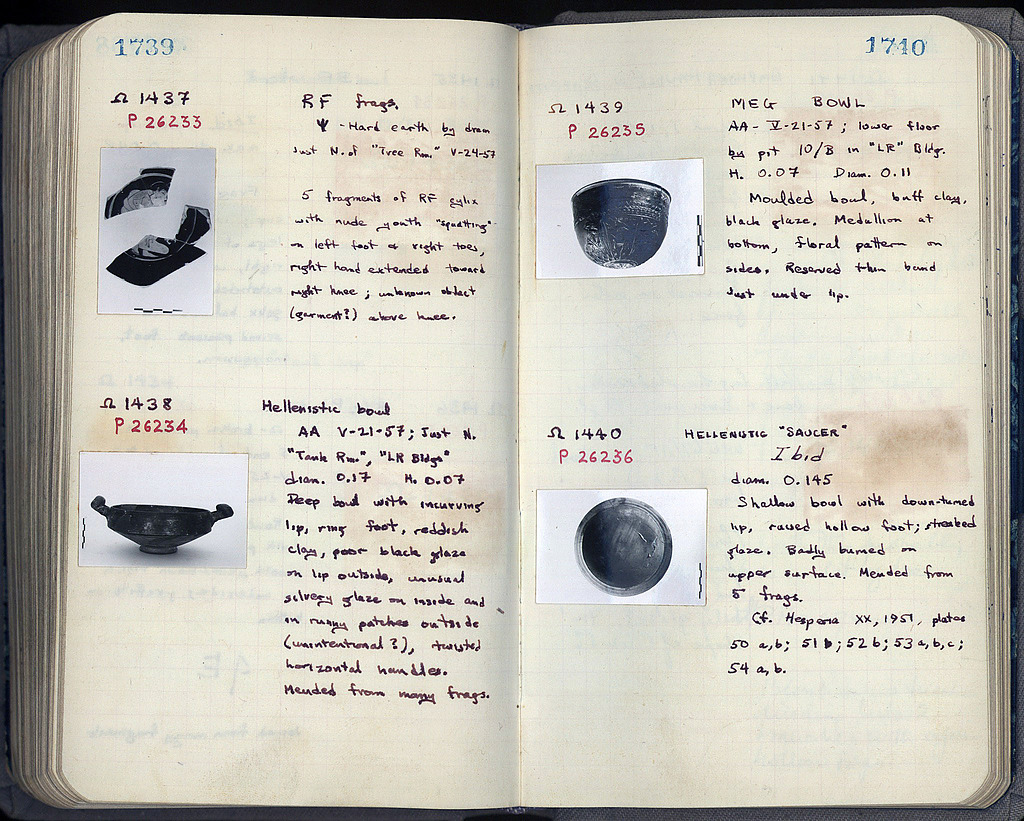 1739
Ω 1437
P 26233
RF frags.
Ψ - Hard earth by drain
Just N. of "Tree Rm." V-24-57
5 fragments of RF cylix
with nude youth "squatting"
on left foot & right toes,
right hand extended toward
right knee; unknown object
(garment?) above knee.
Ω 1438
P 26234
Hellenistic bowl
AA V-21-57; Just N.
"Tank Rm.", "LR Bldg"
diam. 0.17 H. 0.07
Deep bowl with incurving
lip, ring foot, reddish
clay, poor black glaze
on lip outside, unusual
silvery glaze on inside and
in runny patches outside
(unintentional?), twisted
horizontal handles.
Mended from many frags.
1740
Ω 1439
P 26235
MEG BOWL
AA - V-21-57; lower floor
by pit 10/B in "LR" Bldg.
H. 0.07 Diam. 0.11
Moulded bowl, buff clay,
black glaze. Medallion at
bottom, floral pattern on
sides. Reserved thin band
Just under lip.
Ω 1440
P 26236
HELLENISTIC "SAUCER"
Ibid
diam. 0.145
Shallow bowl with down-turned
lip, raised hollow foot; streaked
glaze. Badly burned on
upper surface. Mended from
5 frags.
Cf. Hesperia XX, 1951, plates
50 a,b; 51 b; 52 b; 53 a,b,c;
54 a,b.